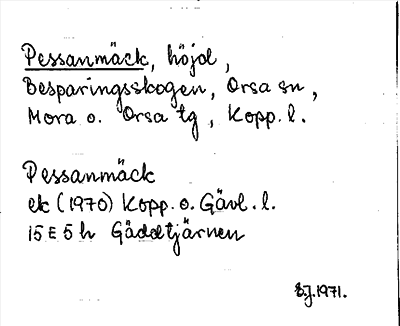 Pessanmäck, höjd,
Besparingsskogen, Orsa sn,
Mora o. Orsa tg, Kopp. l.
Pessanmäck
ek (1970) Kopp. o. Gävl. l.
15 E 5 h Gäddtjärnen
S.J. 1971.